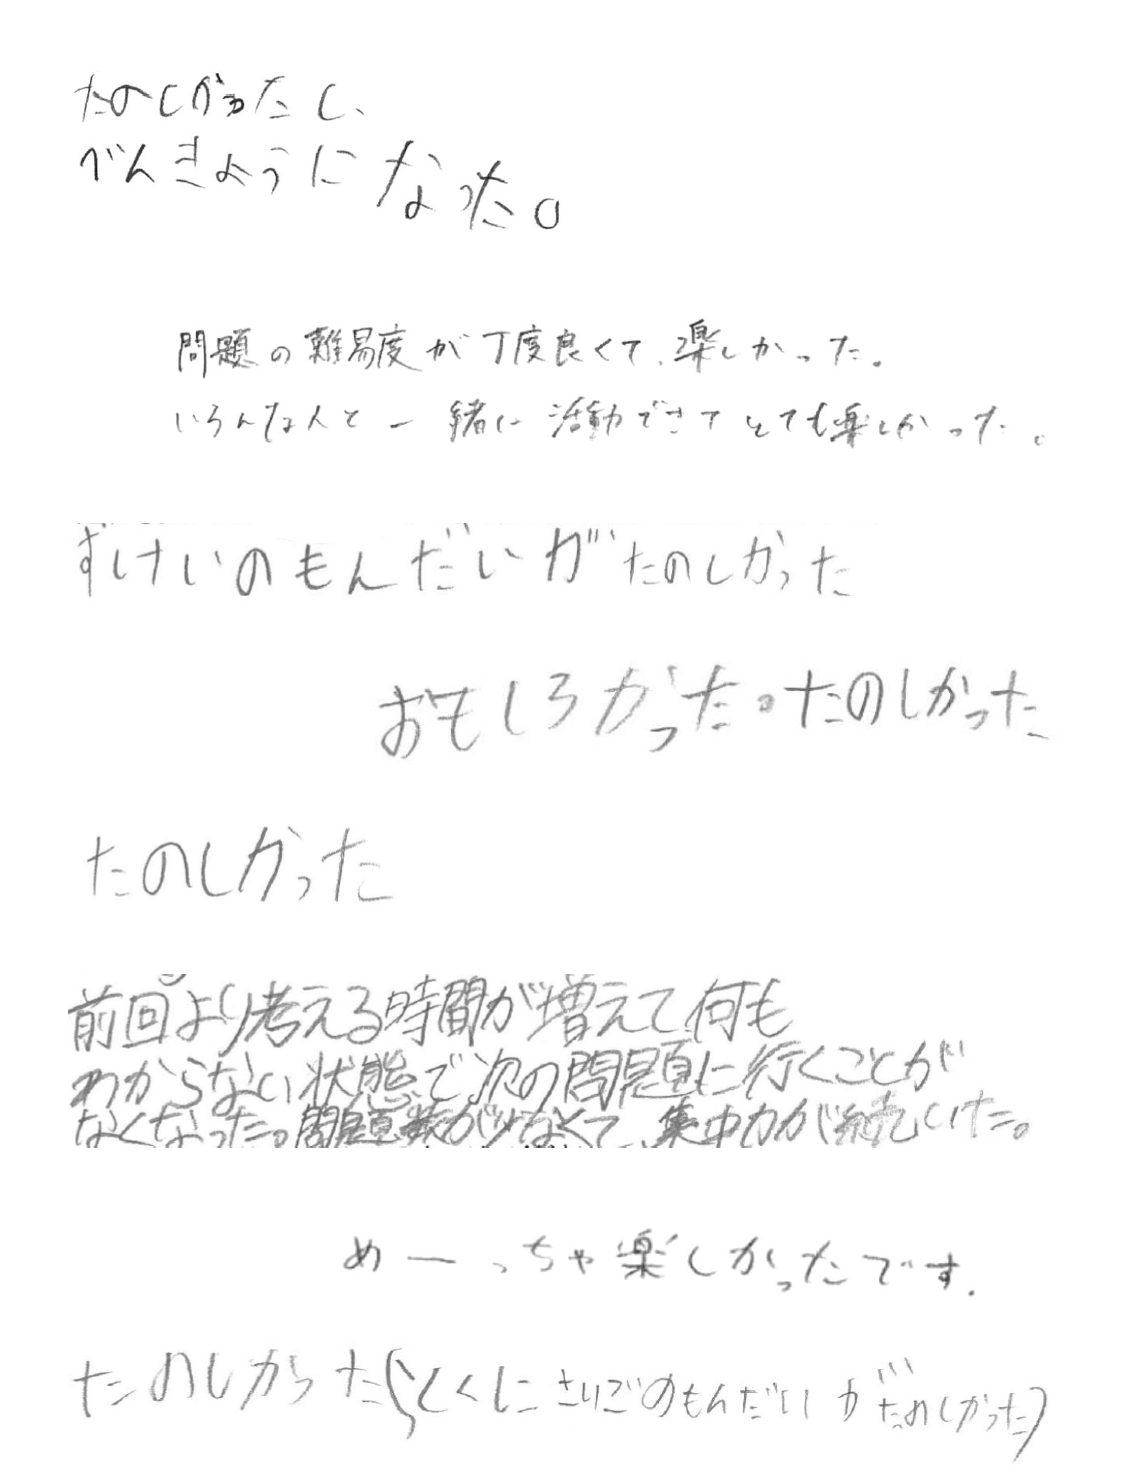 たのしかったし、
べんきょうになった。
問題の難易度が丁度良くて、楽しかった。
いろんな人と一緒に活動できてとても楽しかった。
ずけいのもんだいがたのしかった
おもしろかった。たのしかった
たのしかった
前回より考える時間が増えて、何も
わからない状態で次の問題に行くことが
なくなった。問題数が少なくて、集中力が続いた。
めーっちゃ楽しかったです.
たのしかった(とくにさいごのもんだいがたのしかった)